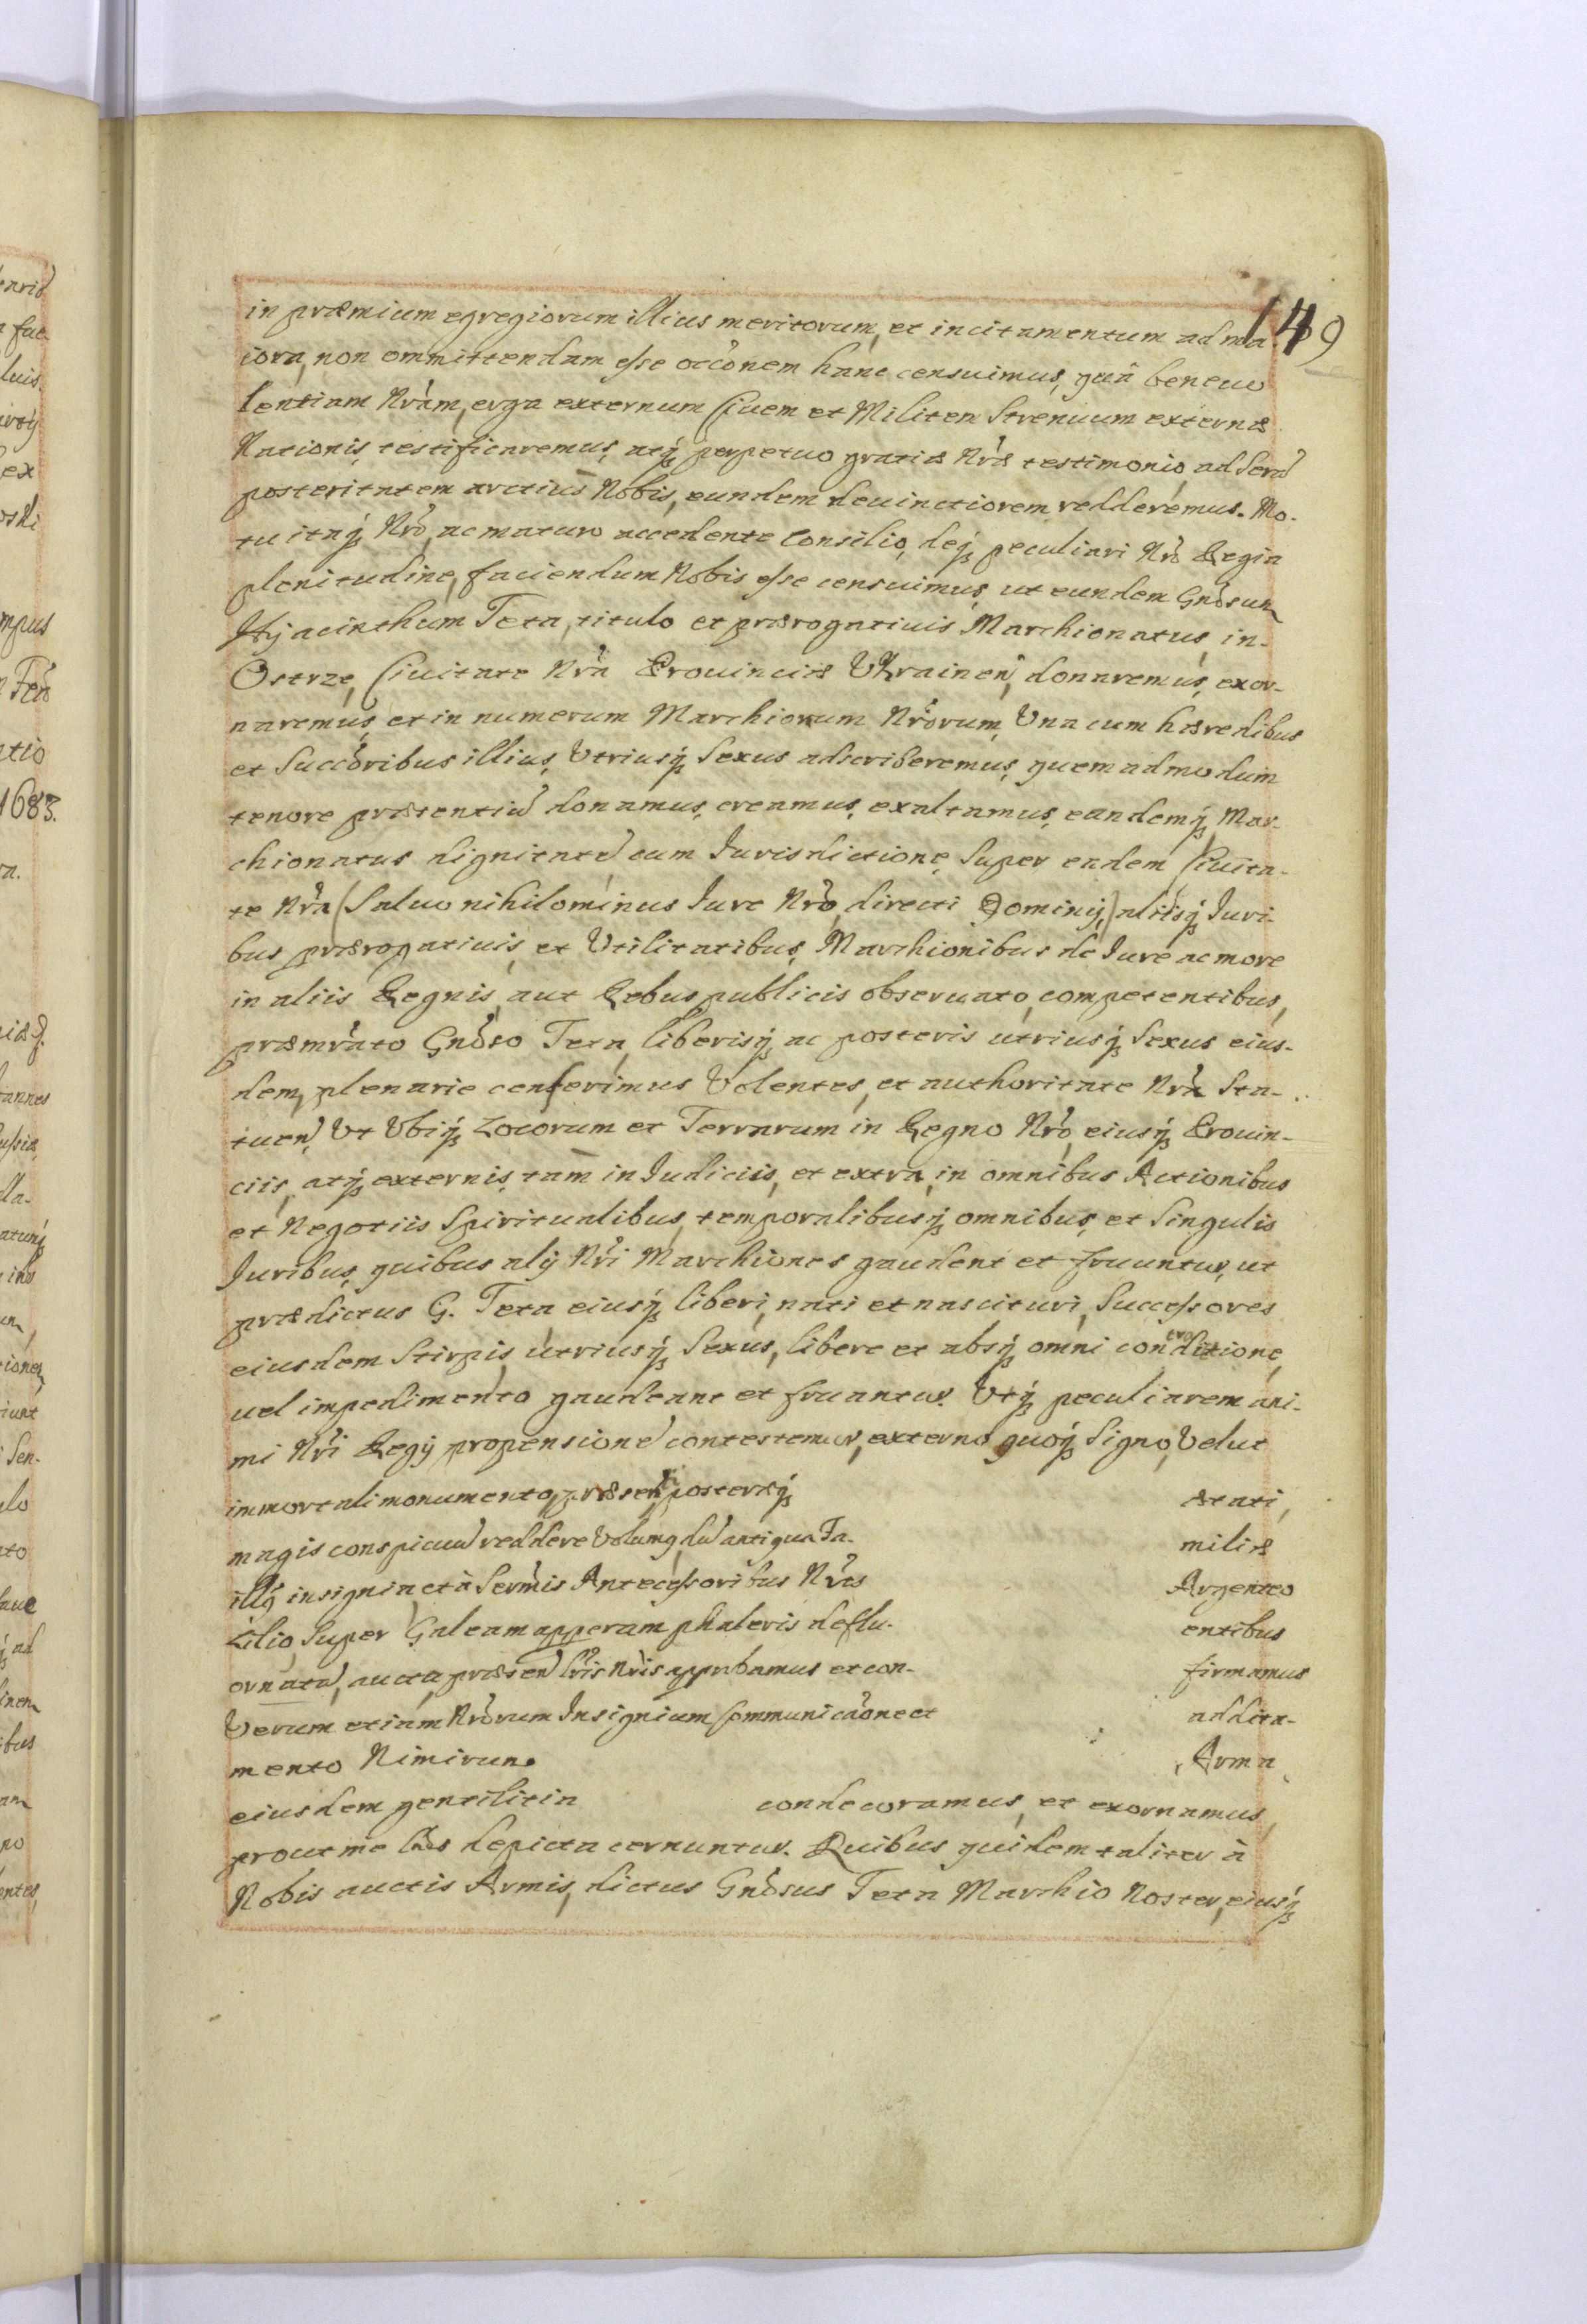 149
in præmium egregiorum illius meritorum, et incitamentum ad ma-
iora, non ommittendam esse occõnem hanc censuimus, quâ beneuo
lentiam Nrãm, erga externum Ciuem et Militem Strenuum externæ
Nationis, testificaremus, atq₃ perpetuo gratiæ Nræ testimonio, ad Serã
posteritatem arctius Nobis, eundem deuinctiorem redderemus. Mo-
tu itaq₃ Nrõ, ac maturo accedente Consilio, deq₃ peculiari Nrã Regia
plenitudine, faciendum Nobis esse censuimus, ut eundem Gnõsum
Hyacinthum Teta, titulo et prærogatiuis Marchionatus, in-
Ostrze, Ciuitate Nrã Prouinciæ Ukrainen̄, donaremus, exor-
naremus, et in numerum Marchionum Nrõrum, Vna cum hæredibus
et Succõribus illius, Vtriusq₃ Sexus adscriberemus, quemadmodum
tenore præsentiũ donamus, creamus, exaltamus, eandemq₃ Mar-
chionatus dignitatẽ cum Jurisdictione, Super eadem Ciuita-
te Nrã (Saluo nihilominus Jure Nrõ, directi Dominij,) aliisq₃ Juri-
bus prærogatiuis, et Vtilitatibus, Marchionibus de Jure ac more
in aliis Regnis, aut Rebus publicis obseruato, competentibus,
præmr̃ato Gnõso Teta, liberisq₃ ac posteris utriusq₃ Sexus eius-
dem, plenarie conferimus Volentes, et authoritate Nrã Sta-
tuen̄, Vt Vbiq₃ Locorum et Terrarum in Regno Nrõ, eiusq₃ Prouin-
ciis, atq₃ externis, tam in Judiciis, et extra, in omnibus Actionibus
et Negotiis Spiritualibus, temporalibusq₃ omnibus, et Singulis
Juribus, quibus alij Nrĩ Marchiones gaudent et fruuntur, ut
prædictus G. Teta, eiusq₃ liberi, nati et nascituri, Successores
eiusdem Stirpis, utriusq₃ Sexus, libere et absq₃ omni contradictione,
uel impedimento gaudeant et fruantur. Vtq₃ peculiarem ani-
mi Nrĩ Regij propensionẽ contestemur, externo quoq₃ Signo, Velut
immortali monumento, præsen̄ posteræq₃ ætati,
magis conspicuũ reddere Volumq₃, dũ antiqua Fa- miliæ
illiq₃ insignia et à Sermĩs Antecessoribus Nrĩs Argenteo
Lilio, Super Galeam apperam phaleris deflu- entibus
ornata, aucta, præsen̄ Lrĩs Nrĩs approbamus et con- firmamus
Verum etiam Nrõrum Insignium Communicãone et addita-
mento Nimirum. Arma
eiusdem gentilitia condecoramus, et exornamus,
prout me lads depicta cernuntur. Quibus quidem taliter à
Nobis auctis Armis, dictus Gnõsus Teta Marchio Noster, eiusq₃